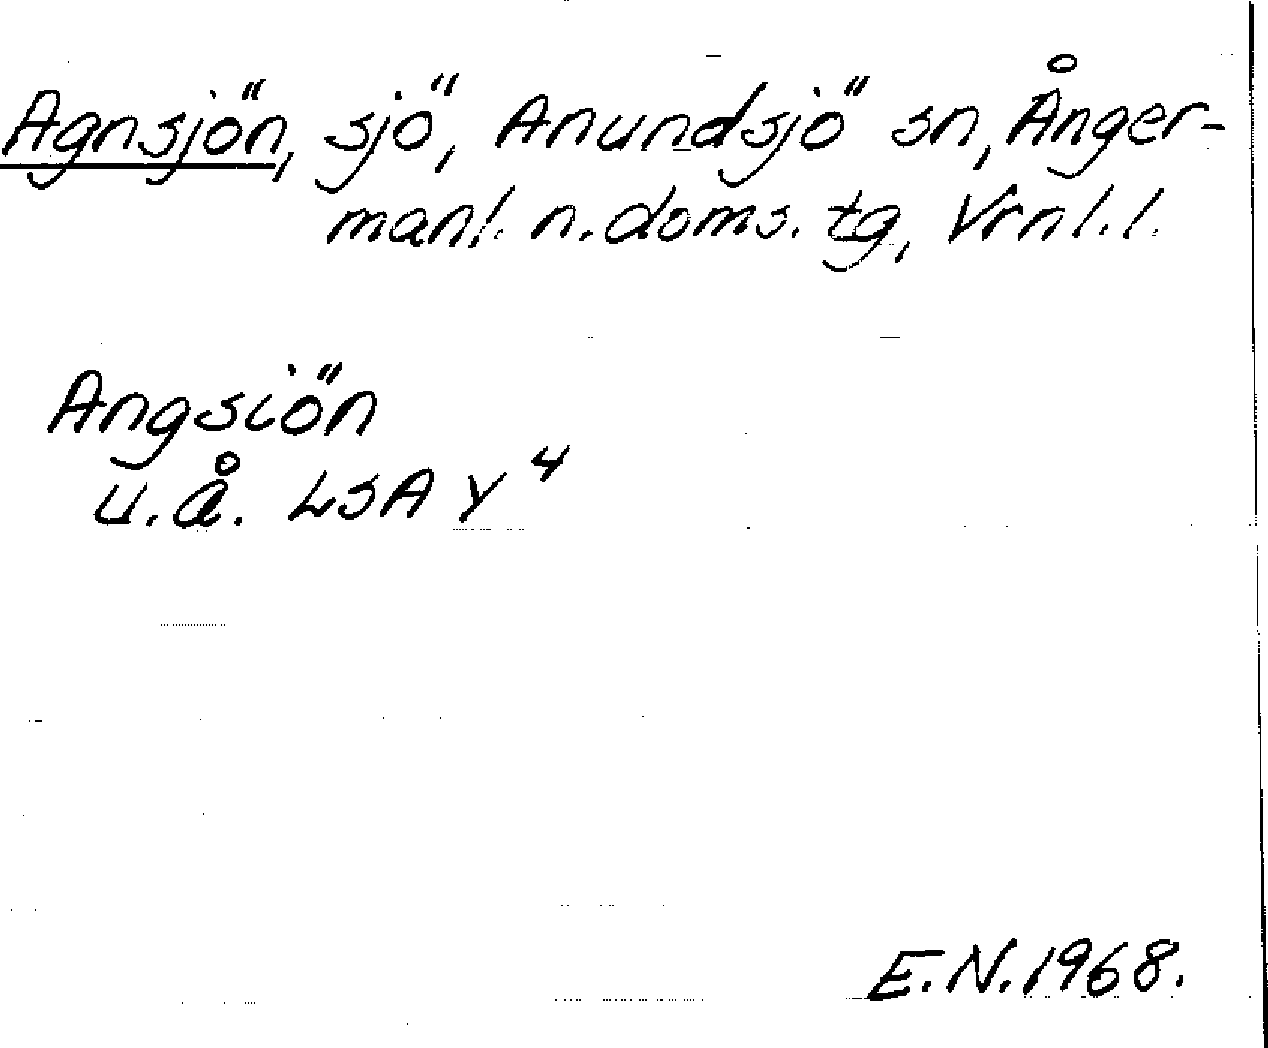 Agnsjön, sjö, Anundsjö sn, Ånger-
manl. n. doms. tg, Vrnl. l.
Angsiön
u. å. LSA Y 4
E.N. 1968.